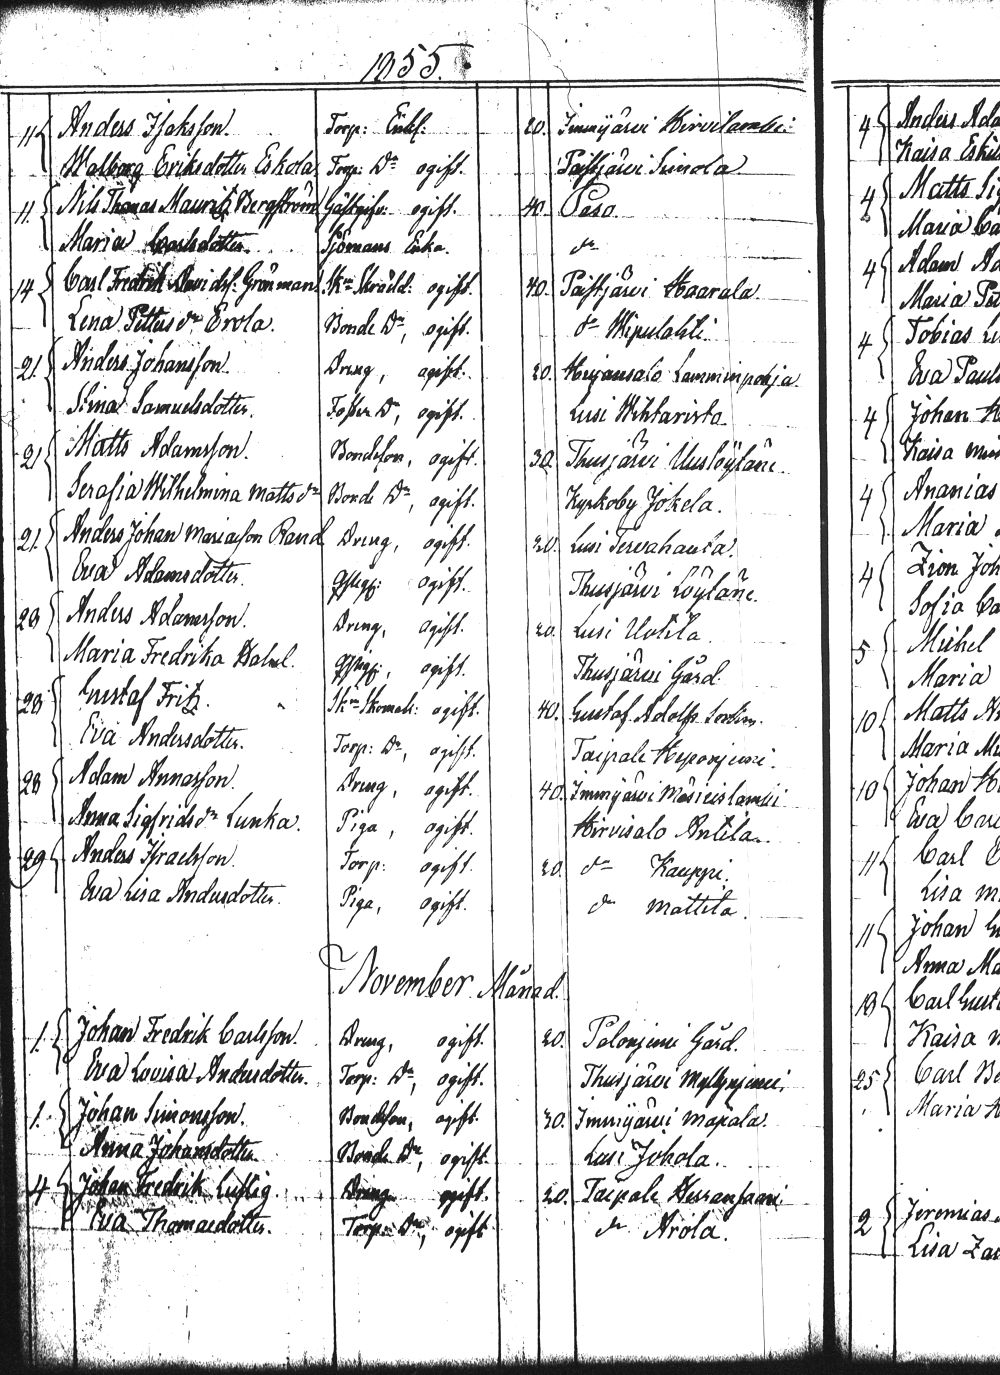 1855.
11 Anders Isaksson. Torp: Enkl: 20. Immijärvi Hirvilambi.
Walborg Eriksdotter Eskola Torp: Dr ogift. Paistjärvi Simola
11. Nils Thomas Mauritz Bergström Gästgifv: ogift. 40. Paso.
Maria Carlsdotter. Sjömans Enka. dr
14 Carl Fredrik Davidsf: Grönman Skn Skrädd: ogift. 40. Paistjärvi Haarala.
Lena Petters dr Erola. Bonde Dr, ogift. dr Wipulahti.
21. Anders Johansson. Dreng, ogift. 20. Heijansalo Lamminpohja.
Stina Samuelsdotter. Foster Dr, ogift. Lusi Wihtarista
21 Matts Adamsson. Bondeson, ogift. 30. Thusjärvi Uuslöytäne.
Serafia Wilhelmina Matts dr Bonde Dr, ogift. Kyrkoby Jokela.
21. Anders Johan Mariason Rand Dreng, ogift. 20. Lusi Tervahauta.
Eva Adamsdotter. ogift. Thusjärvi Löytäne.
28 Anders Adamsson. Dreng, ogift. 20. Lusi Uotila
Maria Fredrika Holml. ogift. Thusjärvi Gård.
28 Gustaf Fritz. Skn Skomak: ogift. 40. Gustaf Adolfs Socken.
Eva Andersdotter. Torp: Dr, ogift. Taipale Heponjemi.
28 Adam Annasson. Dreng, ogift. 40. Immijärvi
Anna Sigfrids dr Lunka. Piga, ogift. Hirvisalo Antila.
29 Anders Israelsson. Torp: ogift. 20. dr Kauppi.
Eva Lisa Andersdotter. Piga, ogift. dr Mattila.
November Månad.
1. Johan Fredrik Carlsson. Dreng, ogift. 20. Pelonjemi Gård.
Eva Lovisa Andersdotter. Torp: Dr, ogift. Thusjärvi Myllynjemi.
1. Johan Simonsson. Bondeson, ogift. 30. Immijärvi Mapala.
Anna Johansdotter. Bonde Dr, ogift. Lusi Johola.
4 Johan Fredrik Luftig. Dreng ogift. 20. Taipale Herransaari
Eva Thomaedotter. Torp: Dr, ogift dr Arola.
4 Anders Ada
Kaisa Eski
4 Matts Sig
Maria Ca
4 Adam Ad
Maria Pet
4 Tobias
Eva Pauls
4 Johan H
Kaisa
4 Ananias
Maria
4 Zion Joh
Sofia Ca
5 Michel
Maria
10 Matts
Maria
10 Johan H
Eva Carl
11 Carl
Lisa M
11 Johan
Anna Ma
18 Carl Gust
Kaisa
25 Carl
Maria H
2 Jeremias
Lisa Za